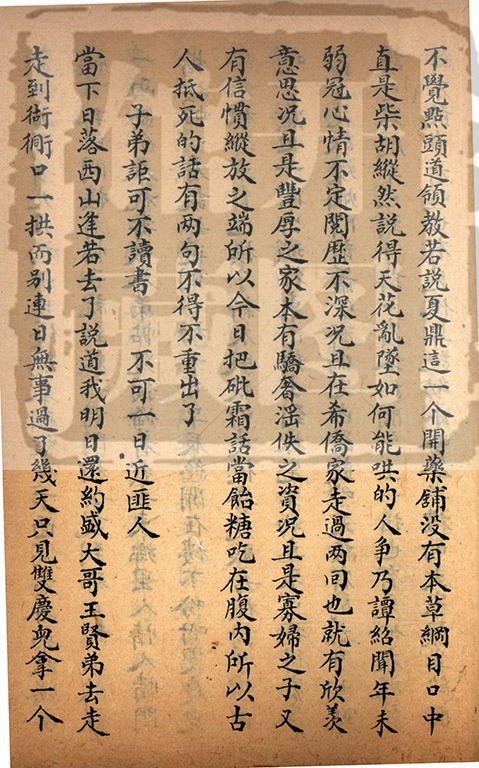 不覺㸃頭道領教若說夏鼎這一个開藥舖没有本草綱目口中
直是柴胡縱然説得天花亂墜如何能哄的人争乃譚紹聞年未
弱冠心情不定閲歷不深况且在希僑家走過两回也就有欣羡
意思况且是豐厚之家本有驕奢滛佚之資况且是寡婦之子又
有信慣縱放之端所以今日把砒霜話當飴糖吃在腹内所以古
人抵死的話有两句不得不重出了
子弟詎可不讀書 不可一日近匪人
當下日落西山逢若去了説道我明日還約盛大哥王賢弟去走
走到衚衕口一拱而别連日無事過了幾天只見雙慶兒拿一个